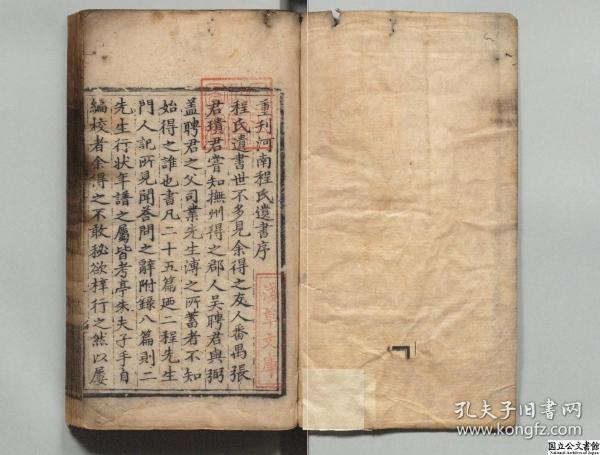 重刊河南程氏遺書序
程氏遺書世不多見余得之友人番禺張
君瓚君嘗知撫州得之郡人吳聘君與弼
盖聘君之父司業先生溥之所蓄者不知
始得之誰也書凡二十五篇廼二程先生
門人記所見聞荅問之辭附録八篇則二
先生行状年譜之屬皆考亭朱夫子手自
編校者余得之不敢秘欲梓行之然以屡
淺草文庫
孔夫子旧書网
www.kongfz.com
国立公文書館
National Archives of Japan